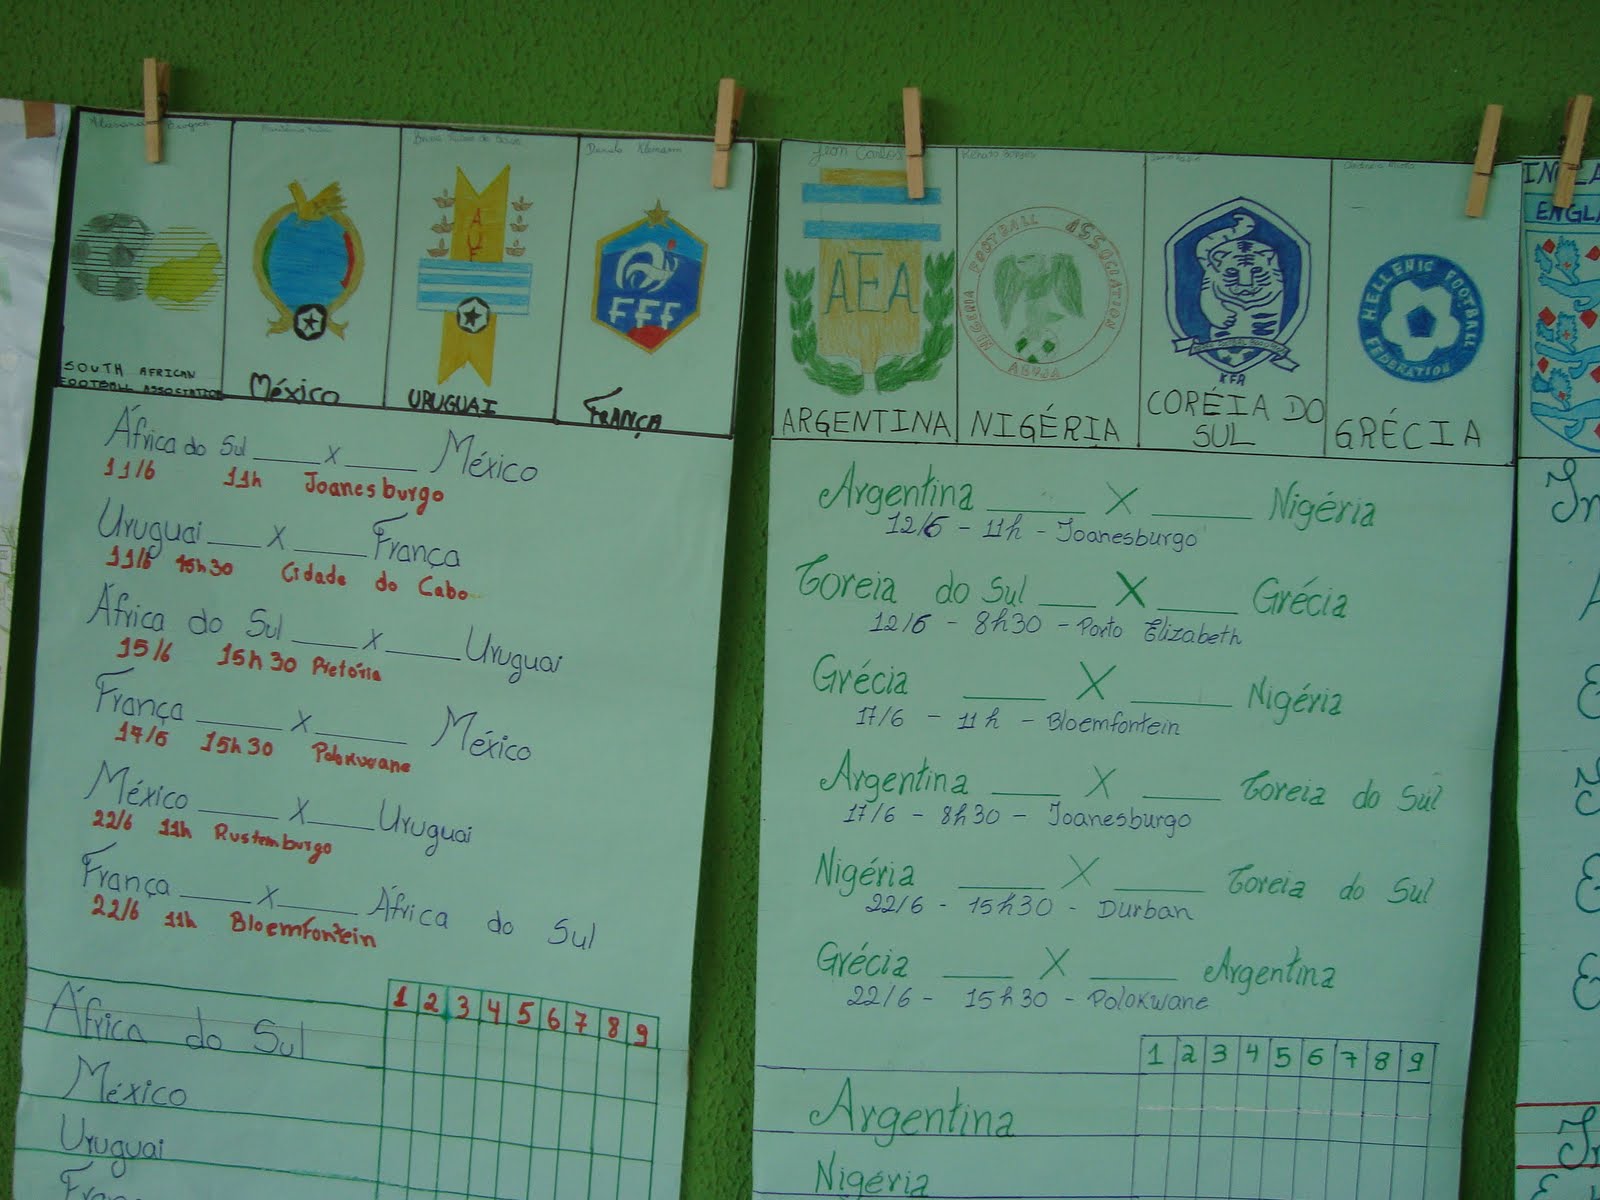 Danilo Klemann
A
U
F
FFF
SOUTH AFRICAN
FOOTBALL ASSOCIATION
México
URUGUAI
FRANÇA
África do Sul ____ x ____ México
11/6 11h Joanesburgo
Uruguai ____ x ____ França
11/6 15h30 Cidade do Cabo
África do Sul ____ x ____ Uruguai
15/6 15h30 Pretória
França ____ x ____ México
17/6 15h30 Polokwane
México ____ x ____ Uruguai
22/6 11h Rustemburgo
França ____ x ____ África do Sul
22/6 11h Bloemfontein
1 2 3 4 5 6 7 8 9
África do Sul
México
Uruguai
Jean Carlos
Renato Borges
AFA
NIGERIA FOOTBALL ASSOCIATION
ABUJA
KFA
HELLENIC FOOTBALL
FEDERATION
ARGENTINA
NIGÉRIA
CORÉIA DO
SUL
GRÉCIA
Argentina ____ X ____ Nigéria
12/6 - 11h - Joanesburgo
Coreia do Sul ____ X ____ Grécia
12/6 - 8h30 - Porto Elizabeth
Grécia ____ X ____ Nigéria
17/6 - 11h - Bloemfontein
Argentina ____ X ____ Coreia do Sul
17/6 - 8h30 - Joanesburgo
Nigéria ____ X ____ Coreia do Sul
22/6 - 15h30 - Durban
Grécia ____ X ____ Argentina
22/6 - 15h30 - Polokwane
1 2 3 4 5 6 7 8 9
Argentina
Nigéria
INGLA
ENGLA